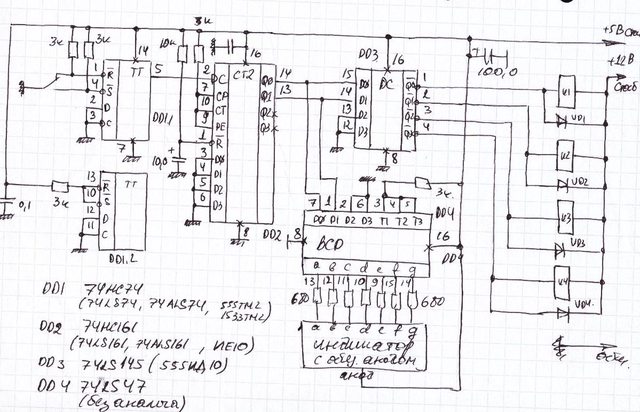 3к
+5В Стаб.
3к 3к
10к
14
16
DD3
16
100,0
+12В
Стаб
1 R̄ TT 5
4 S̄
2 D
3 C
DD1.1
7
2 C CT2 Q0 14
7 CP Q1 13
10 CT Q2
9 PE Q3
1 R̄
3 D0
4 D1
5 D2
6 D3
8
DD2
10,0
15 D0 DC Q̄0 1
14 D1 Q̄1 2
13 D2 Q̄2 3
12 D3 Q̄3 4
8
К1
VD1
К2
VD2
К3
VD3
К4
VD4
0,1
3к
13 R̄ TT
10 S̄
12 D
11 C
DD1.2
3к
7 1 2 6 3 4 5
D0 D1 D2 D3 T1 T2 T3
DD4
16
8
BCD
DD4
a b c d e f g
13 12 11 10 9 15 14
680 680
a b c d e f g
индикатор
с общ. анодом
анод
DD1 74HC74
(74LS74, 74ALS74, 555ТМ2
1533ТМ2)
DD2 74HC161
(74LS161, 74ALS161, ИЕ10)
DD3 74LS145 (555ИД10)
DD4 74LS47
(без аналога)